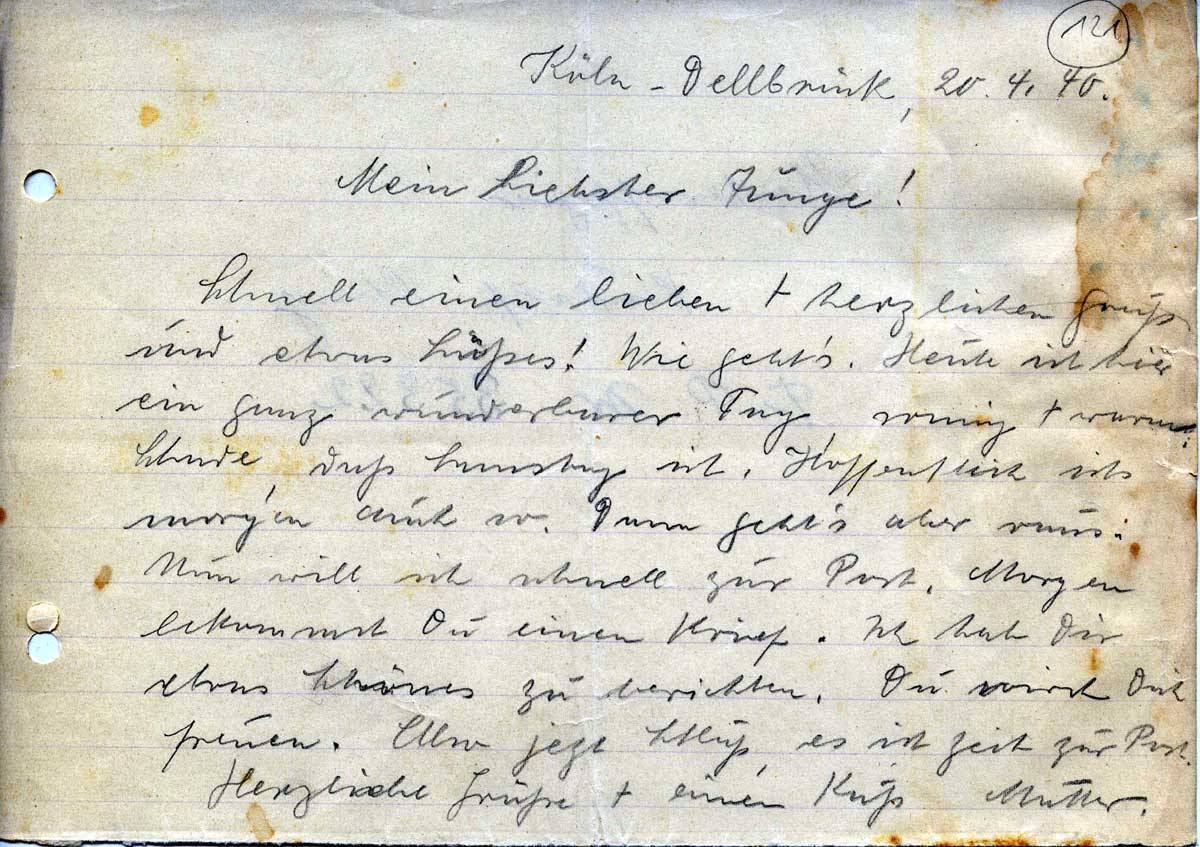 121
Köln - Dellbrück, 20. 4. 40.
Mein Liebster Junge!
Schnell einen lieben + herzlichen Gruß
und etwas Süßes! Wie geht's. Heute ist hier
ein ganz wunderbarer Tag sonnig + warm.
Schade, daß Samstag ist. Hoffentlich ists
morgen auch so. Dann geht's aber raus.
Nun will ich schnell zur Post. Morgen
bekommst Du einen Brief. Ich hab Dir
etwas Schönes zu berichten. Du wirst Dich
freuen. Also jezt Schluß, es ist Zeit zur Post.
Herzliche Grüße + einen Kuß Mutter.